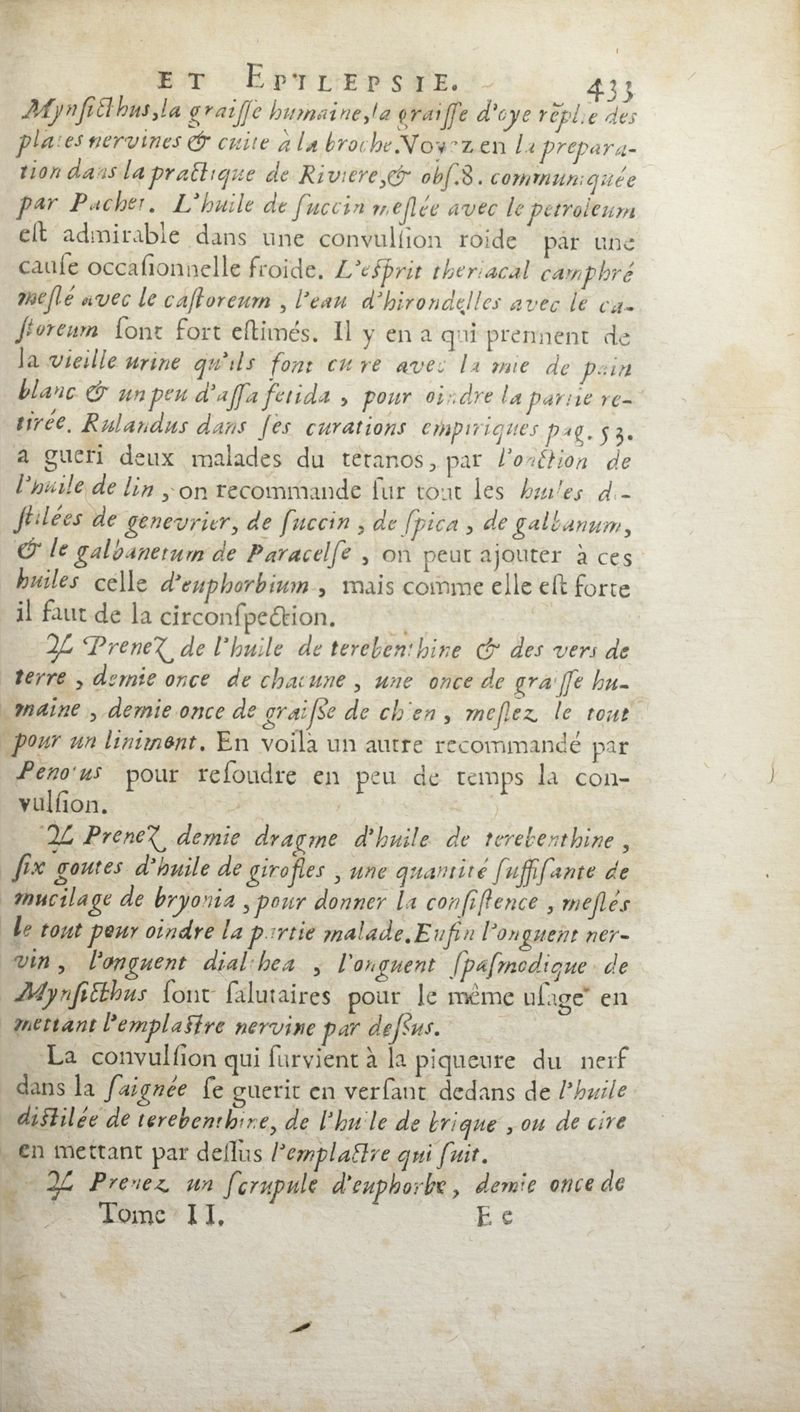 ET EPILEPSIE. 433
Mynsicthus, la graisse humaine, la graisse d'oye replie des
plantes nervines & cuite à la broche. Voyez en la prepara-
tion dans la practique de Riviere, & obs. 8. communiquée
par Pachet. L'huile de succin meslée avec le petroleum
est admirable dans une convulsion roide par une
cause occasionnelle froide. L'esprit theriacal camphré
meslé avec le castoreum, l'eau d'hirondelles avec le ca-
storeum sont fort estimés. Il y en a qui prennent de
la vieille urine qu'ils font cuire avec la mie de pain
blanc & un peu d'assa fetida, pour oindre la partie re-
tirée. Rulandus dans ses curations empiriques pag. 53.
a gueri deux malades du tetanos, par l'onction de
l'huile de lin, on recommande sur tout les huiles di-
stilées de genevrier, de succin, de spica, de galbanum,
& le galbanetum de Paracelse, on peut ajouter à ces
huiles celle d'euphorbium, mais comme elle est forte
il faut de la circonspection.
♃ Prenez de l'huile de terebenthine & des vers de
terre, demie once de chacune, une once de graisse hu-
maine, demie once de graisse de chien, meslez le tout
pour un liniment. En voilà un autre recommandé par
pour resoudre en peu de temps la con-
vulsion.
♃ Prenez demie dragme d'huile de terebenthine,
six goutes d'huile de girofles, une quantité suffisante de
mucilage de bryonia, pour donner la consistence, meslés
le tout pour oindre la partie malade. Enfin l'onguent ner-
vin, l'onguent dialthea, l'onguent spasmodique de
Mynsicthus sont salutaires pour le même usage en
mettant l'emplastre nervine par dessus.
La convulsion qui survient à la piqueure du nerf
dans la saignée se guerit en versant dedans de l'huile
distilée de terebenthine, de l'huile de brique, ou de cire
en mettant par dessus l'emplastre qui suit.
♃ Prenez un scrupule d'euphorbe, demie once de
Tome II. Ee